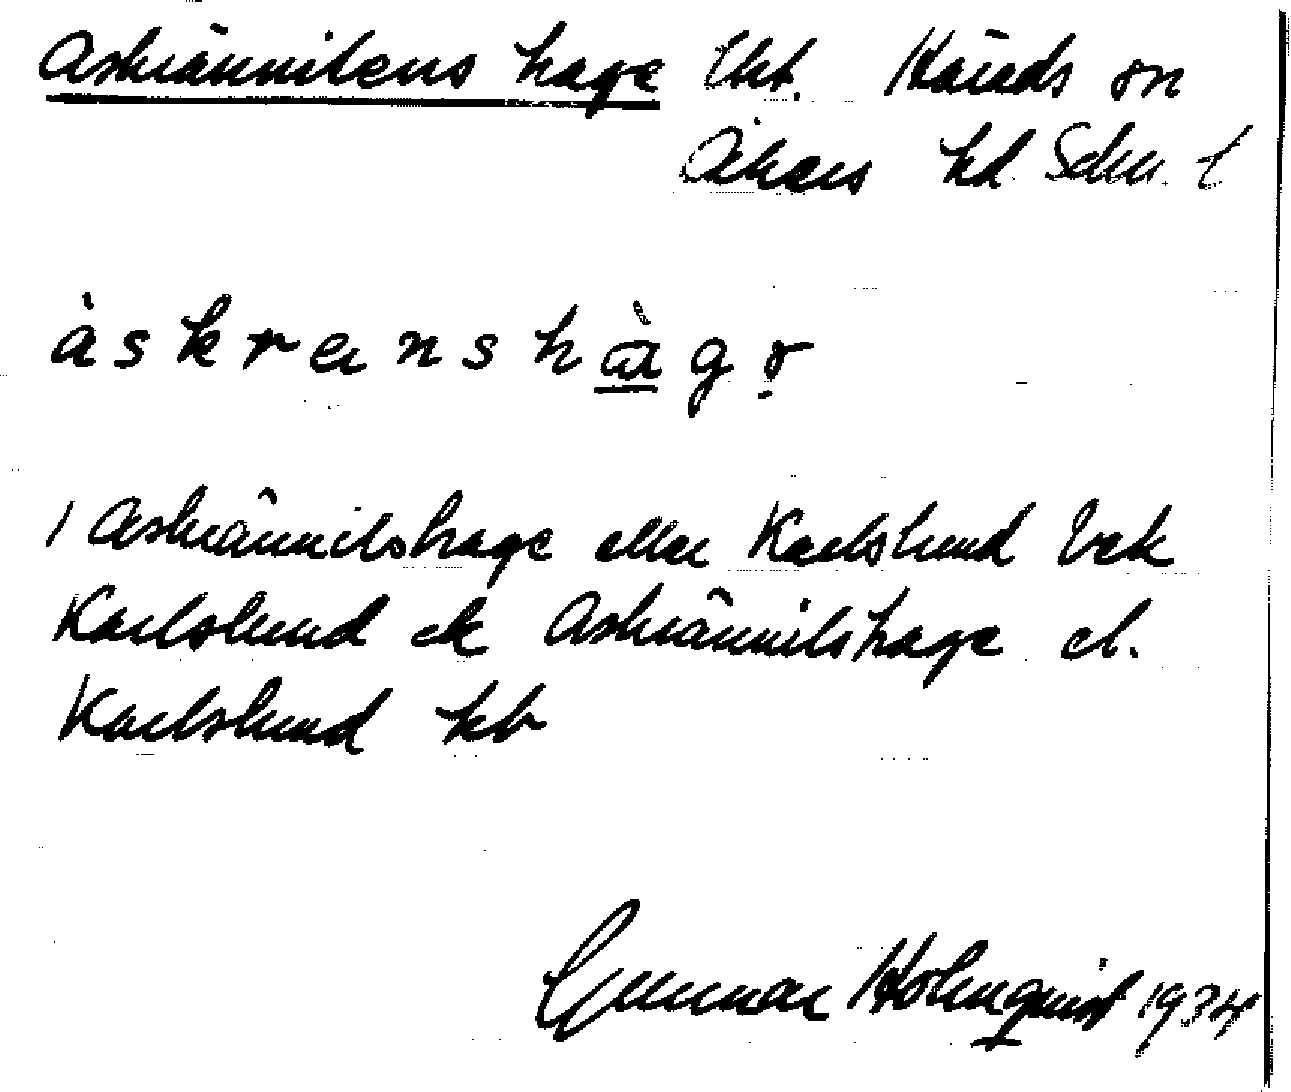 Askrännilens hage lht. Härads sn
Åkers hd Sdm. l
àskrenshàgo
1 Askrännilshage eller Karlslund
Karlslund ek Askrännilshage el.
Karlslund kb
Gunnar Holmquist 1934